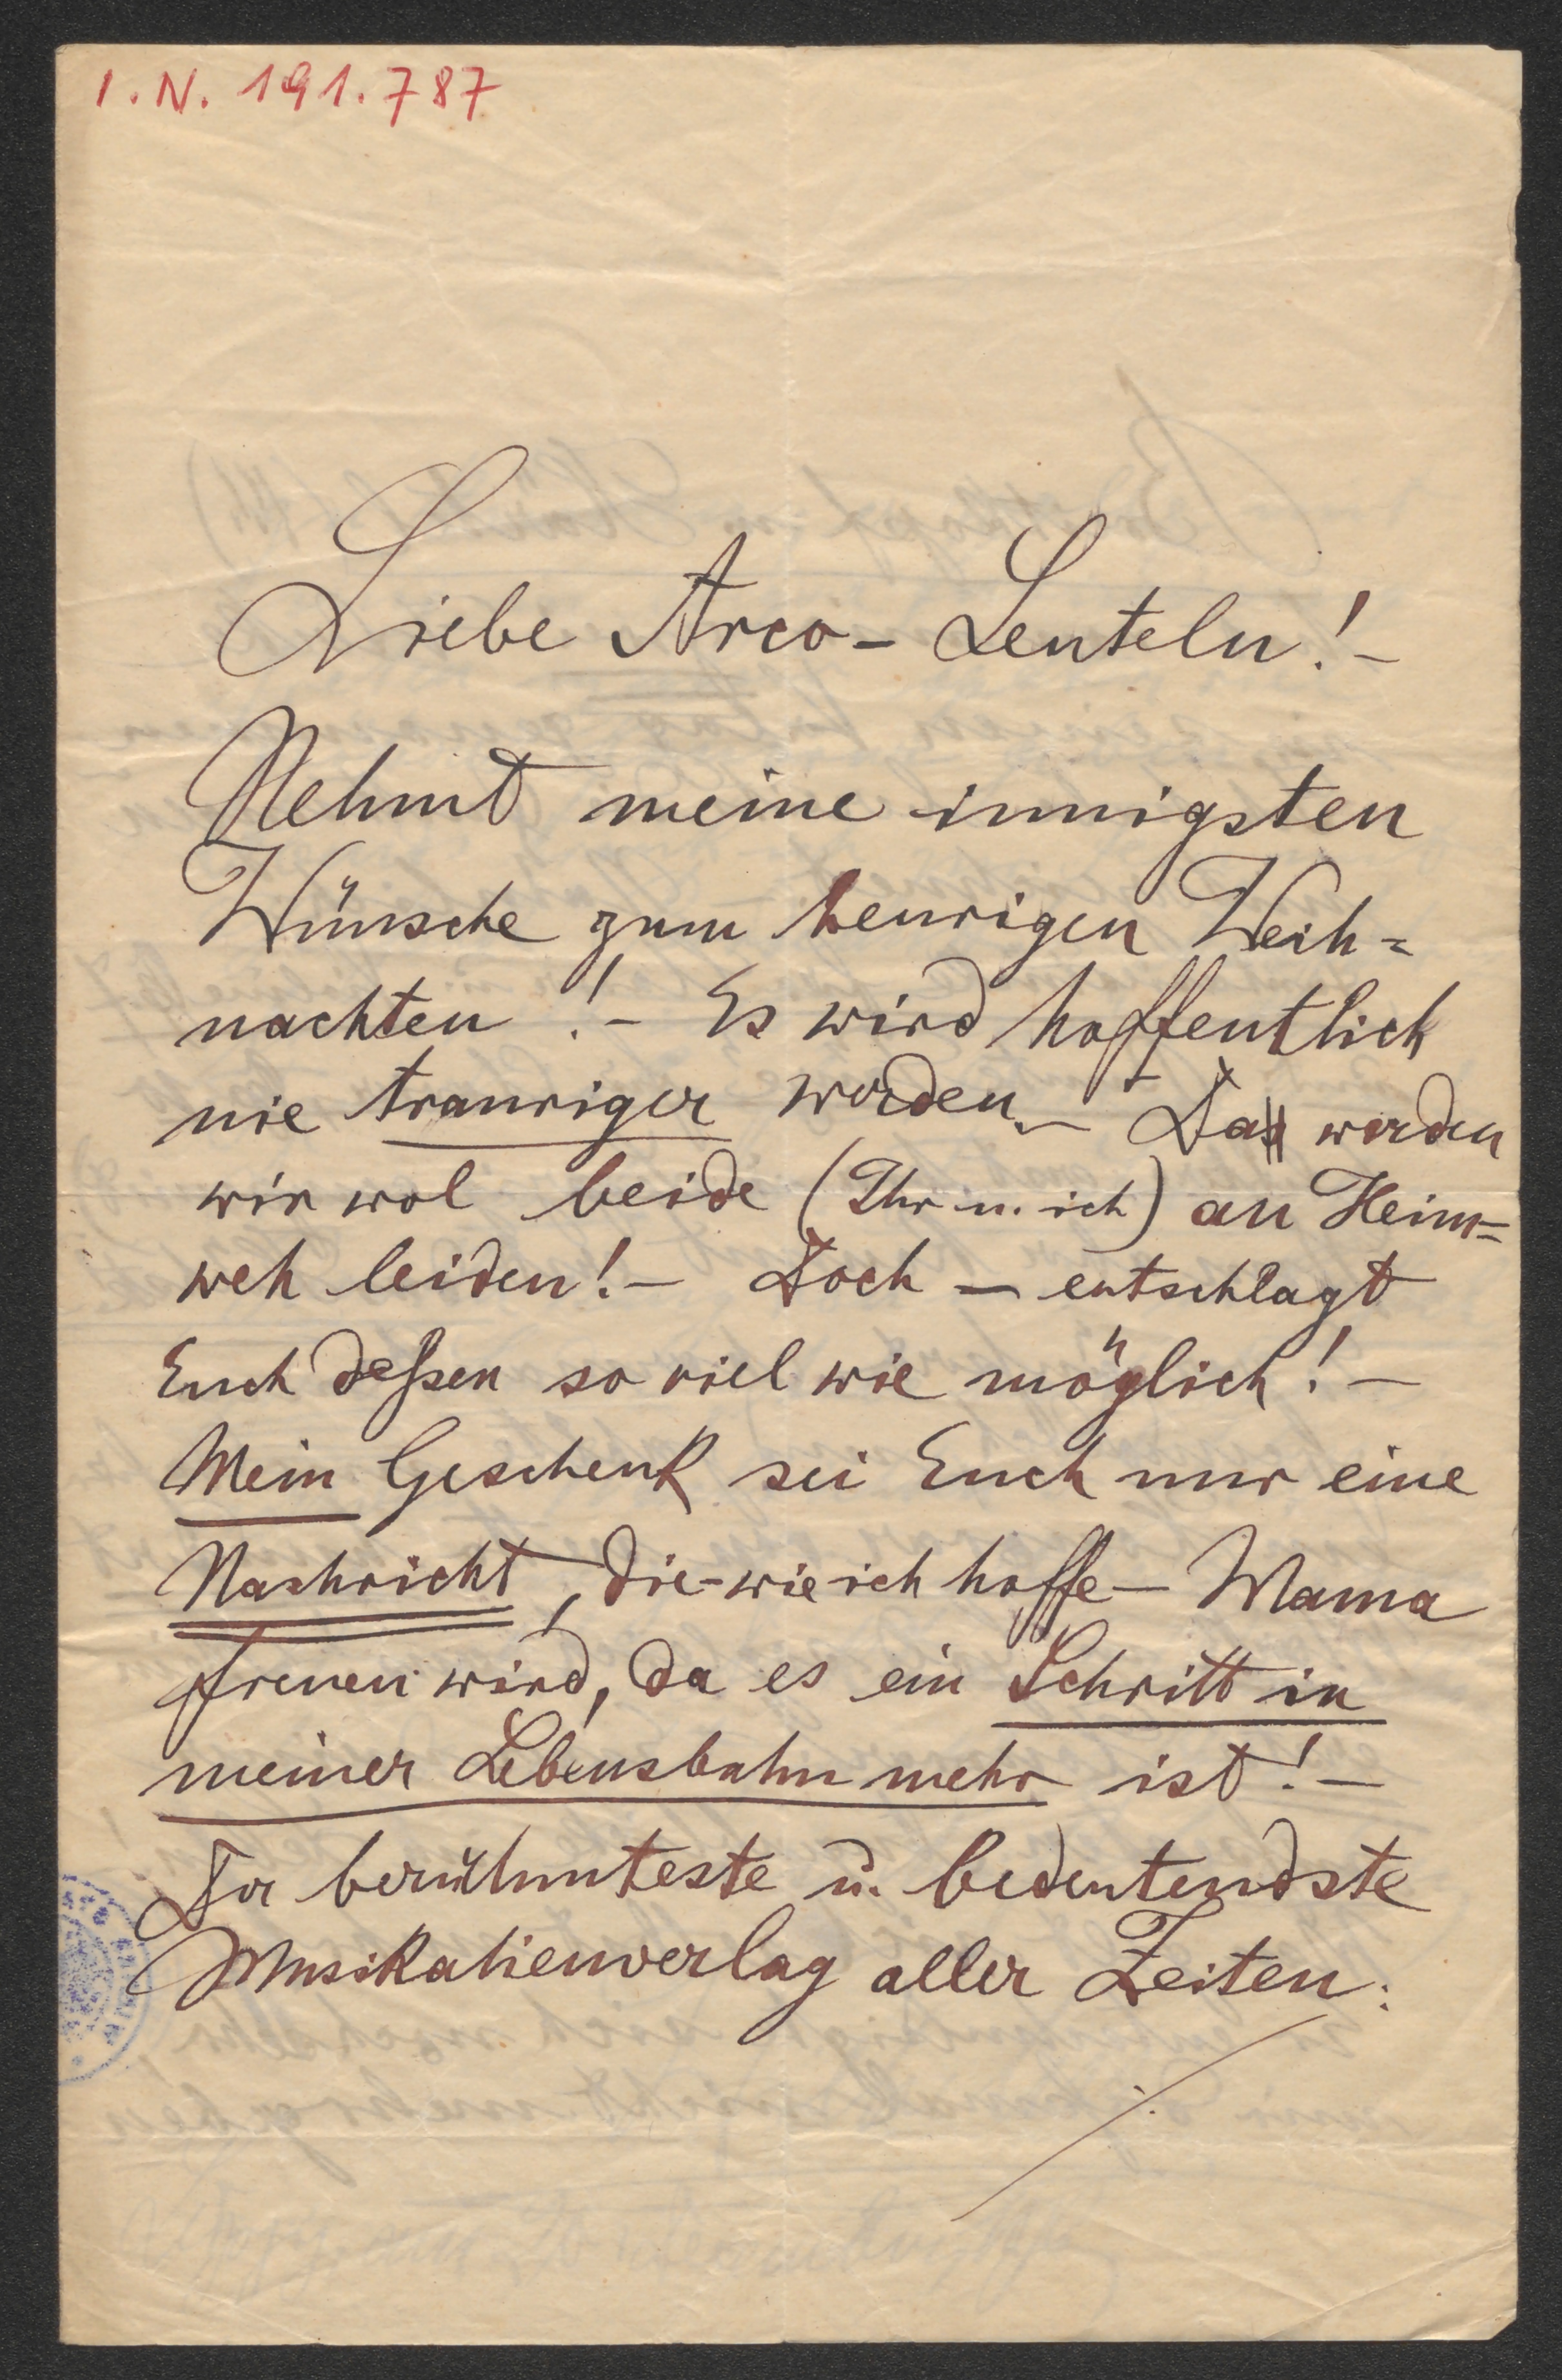 I.N. 191.787
Liebe Arco- Leuteln!-
Nehmt meine innigsten
Wünsche zum heurigen Weih=
nachten!- Es wird hoffentlich
nie trauriger werden.- Da werden
wir wol beide (Ihr u. ich) an Heim=
weh leiden!- Doch - entschlagt
Euch deßen so viel wie möglich!-
Mein Geschenk sei Euch nur eine
Nachricht, die-wie ich hoffe- Mama
freuen wird, da es ein Schritt in
meiner Lebensbahn mehr ist!-
Der berühmteste u. bedeutendste
Musikalienverlag aller Zeiten:
./.